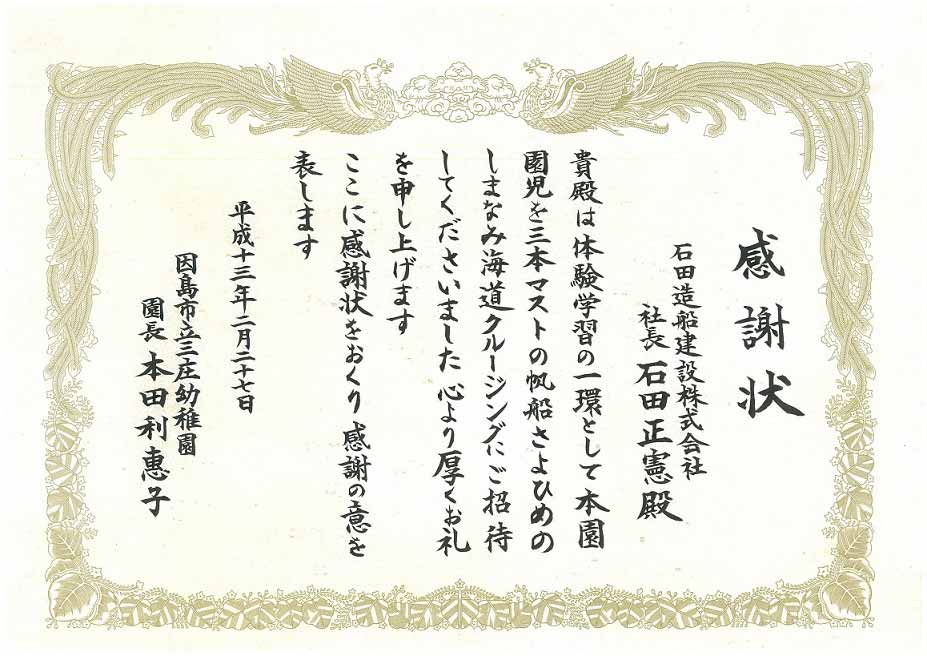 感謝状
石田造船建設株式会社
社長 石田正憲殿
貴殿は体験学習の一環として本園
園児を三本マストの帆船さよひめの
しまなみ海道クルージングにご招待
してくださいました心より厚くお礼
を申し上げます
ここに感謝状をおくり感謝の意を
表します
平成十三年二月二十七日
因島市立三庄幼稚園
園長 本田利惠子